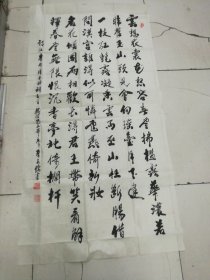 雲想衣裳花想容春風拂檻露華濃若
非群玉山頭見會向瑤臺月下逢
一枝紅艷露凝香雲雨巫山枉斷腸借
問漢宮誰得似可憐飛燕倚新妝
名花傾國兩相歡長得君王帶笑看解
釋春風無限恨沉香亭北倚欄杆